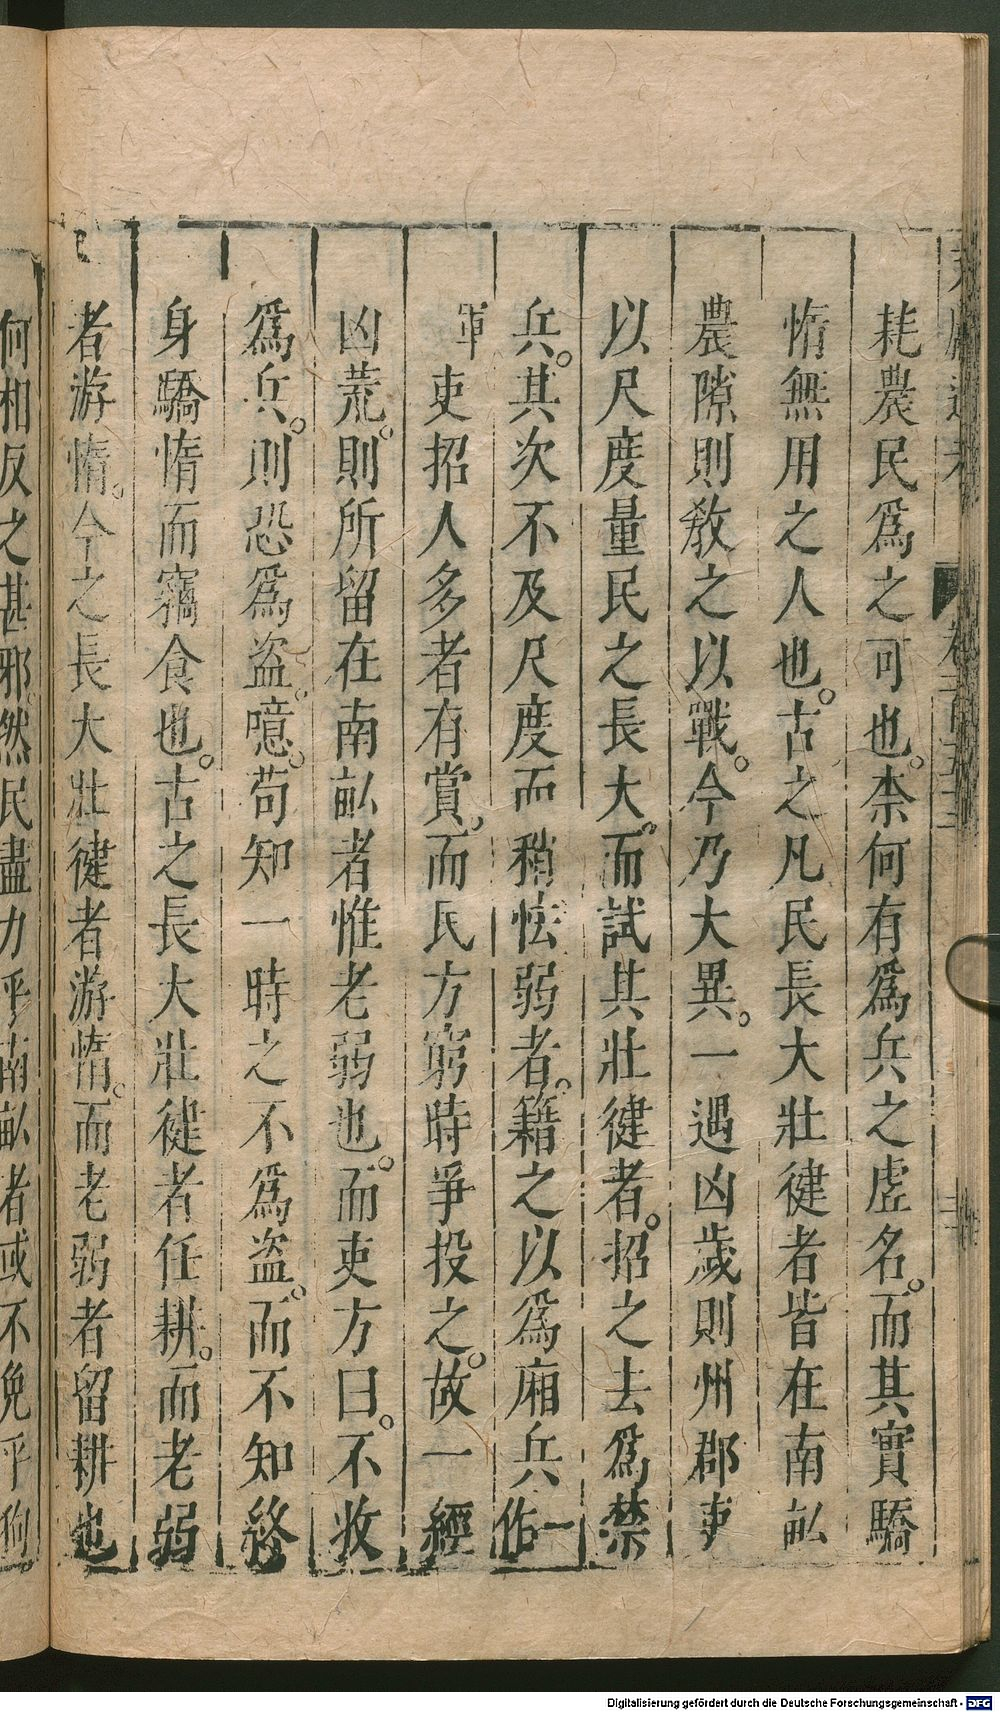 耗農民爲之可也。柰何有爲兵之虛名。而其實驕
惰無用之人也。古之凡民長大壯徤者皆在南畝
農隙則敎之以戰。今乃大異。一遇凶歲則州郡事
以尺度量民之長大。而試其壯徤者。招之去爲禁
兵。其次不及尺度而稍怯弱者。籍之以爲廂兵一作
軍吏招人多者有賞。而民方窮時爭投之。故一經
凶荒。則所留在南畝者惟老弱也。而吏方曰。不收
爲兵。則恐爲盜。噫。苟知一時之不爲盜。而不知終
身驕惰而竊食也。古之長大壯徤者任耕。而老弱
者游惰。今之長大壯徤者游惰。而老弱者留耕也
何相反之甚邪。然民盡力乎南畝者或不免乎狗
Digitalisierung gefördert durch die Deutsche Forschungsgemeinschaft - DFG